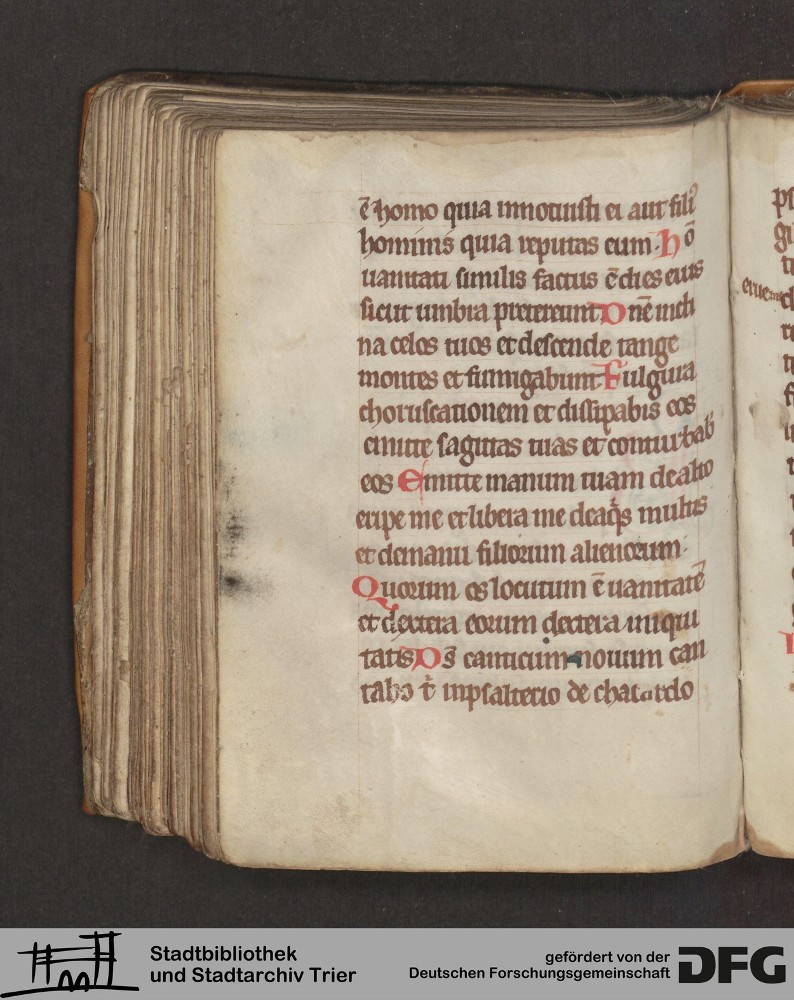 ē homo quia innotuisti ei aut fili᷒
hominis quia reputas eum· hō
uanitati similis factus ē dies eius
sicut umbra pretereunt Dn̄e incli
na celos tuos et descende tange
montes et fumigabunt Fulgura
choruscationem et dissipabis eos
emitte sagittas tuas et conturbab
eos Emitte manum tuam de alto
eripe me et libera me de aq̄s multis
et de manu filiorum alienorum·
Quorum os locutum ē uanitatē
et dextera eorum dextera iniqui
tatis Ds̄ canticum nouum can
tabo t̄ in psalterio de chacordo
ps
Stadtbibliothek
und Stadtarchiv Trier
gefördert von der
Deutschen Forschungsgemeinschaft
DFG